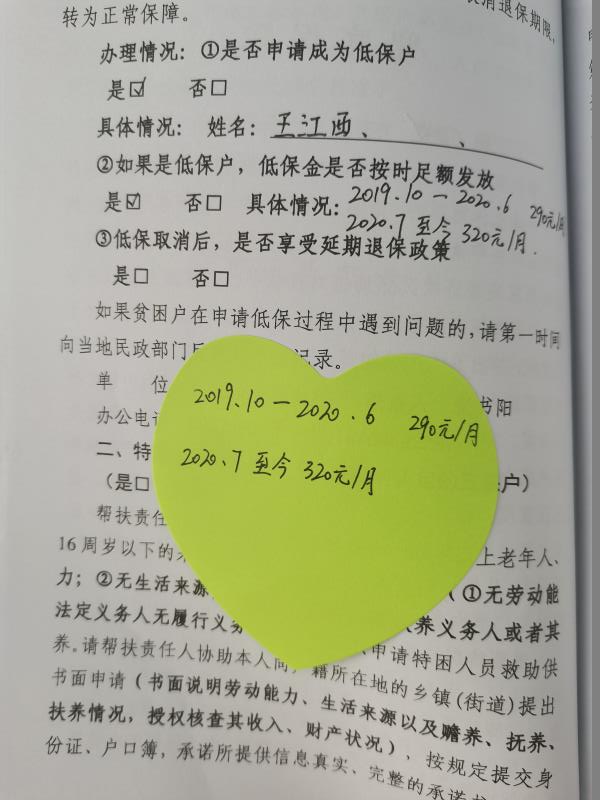 消退保期限,
转为正常保障。
办理情况：①是否申请成为低保户
是☑ 否□
具体情况： 姓名：王江西、 、
②如果是低保户，低保金是否按时足额发放
是☑ 否□ 具体情况：2019.10—2020.6 290元/月
2020.7至今 320元/月.
③低保取消后，是否享受延期退保政策
是□ 否□
如果贫困户在申请低保过程中遇到问题的，请第一时间
向当地民政部门 记录。
单 位 书阳
办公电话
二、特
(是□ 户)
帮扶责任
16周岁以下的 上老年人、
力；②无生活来源 (①无劳动能
法定义务人无履行义务 养义务人或者其
养。请帮扶责任人协助本人向 籍所在地的乡镇(街道)提出 申请特困人员救助供
书面申请(书面说明劳动能力、生活来源以及赡养、抚养、
扶养情况，授权核查其收入、财产状况)，按规定提交身
份证、户口簿，承诺所提供信息真实、完整的承诺书
2019.10—2020.6 290元/月
2020.7至今 320元/月